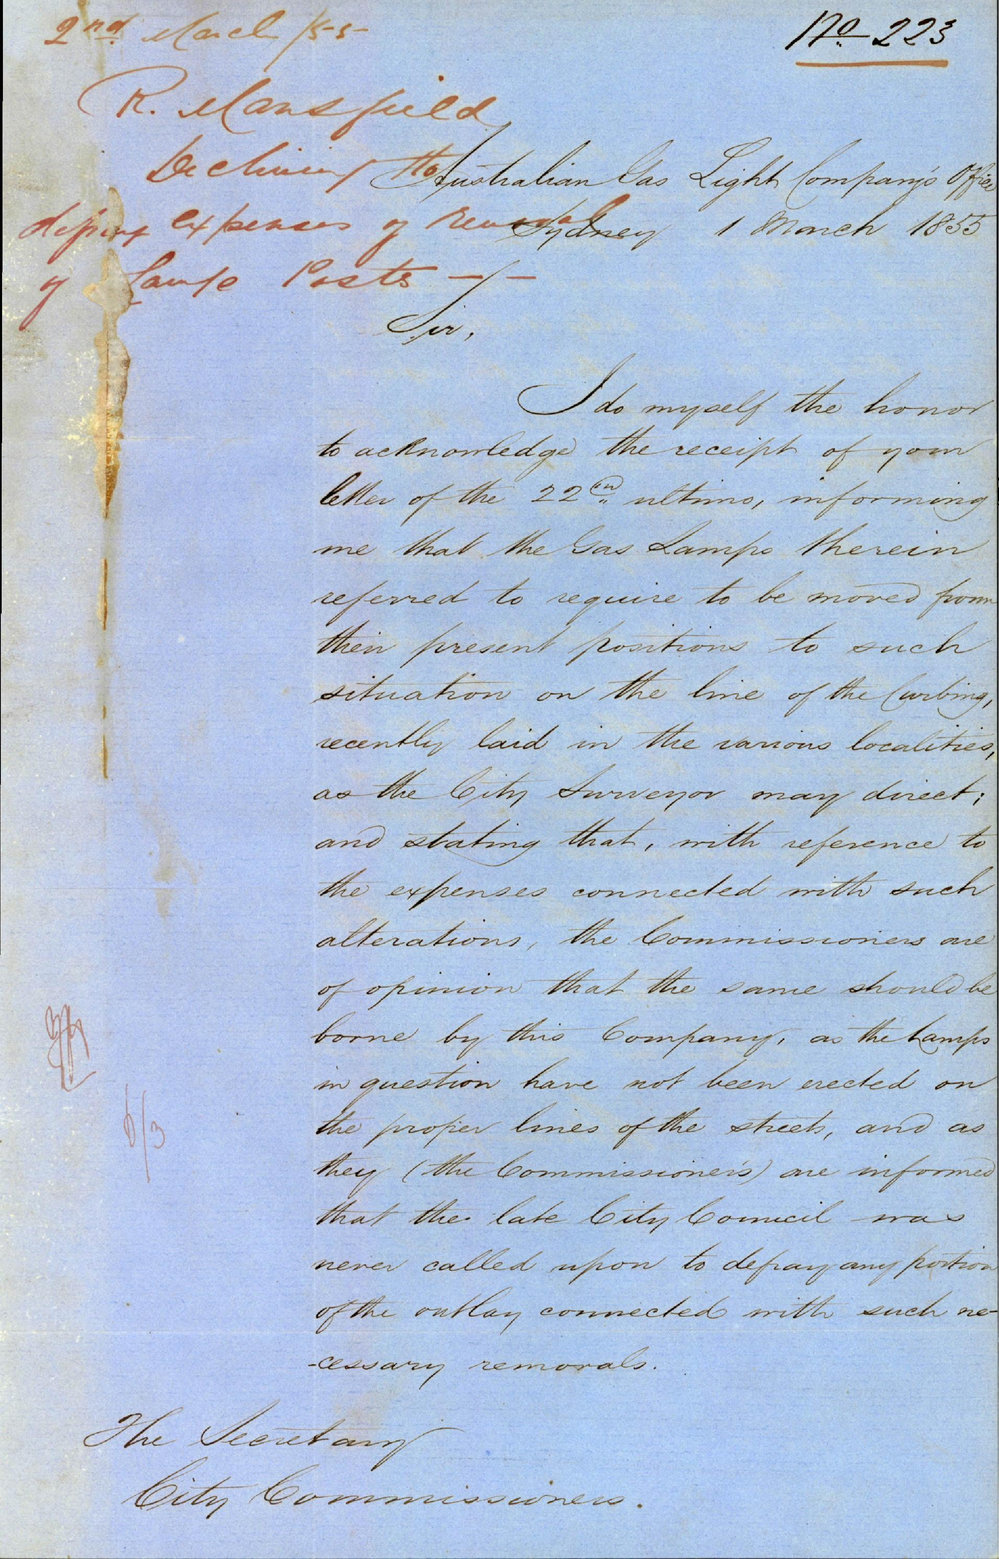 2nd March /55
No 223
R. Mansfield
Declining the
Australian Gas Light Company's Office
expenses of removal
Sydney 1 March 1855
of Lamp Posts
Sir,
I do myself the honor
to acknowledge the receipt of your
letter of the 22nd ultimo, informing
me that the Gas Lamps therein
referred to require to be moved from
their present positions to such
situation on the line of the Curbing,
recently laid in the various localities,
as the City Surveyor may direct;
and stating that, with reference to
the expenses connected with such
alterations, the Commissioners are
of opinion that the same should be
borne by this Company, as the Lamps
in question have not been erected on
the proper lines of the streets, and as
they (the Commissioners) are informed
that the late City Council was
never called upon to defray any portion
of the outlay connected with such ne-
-cessary removals.
6/3
The Secretary
City Commissioners.